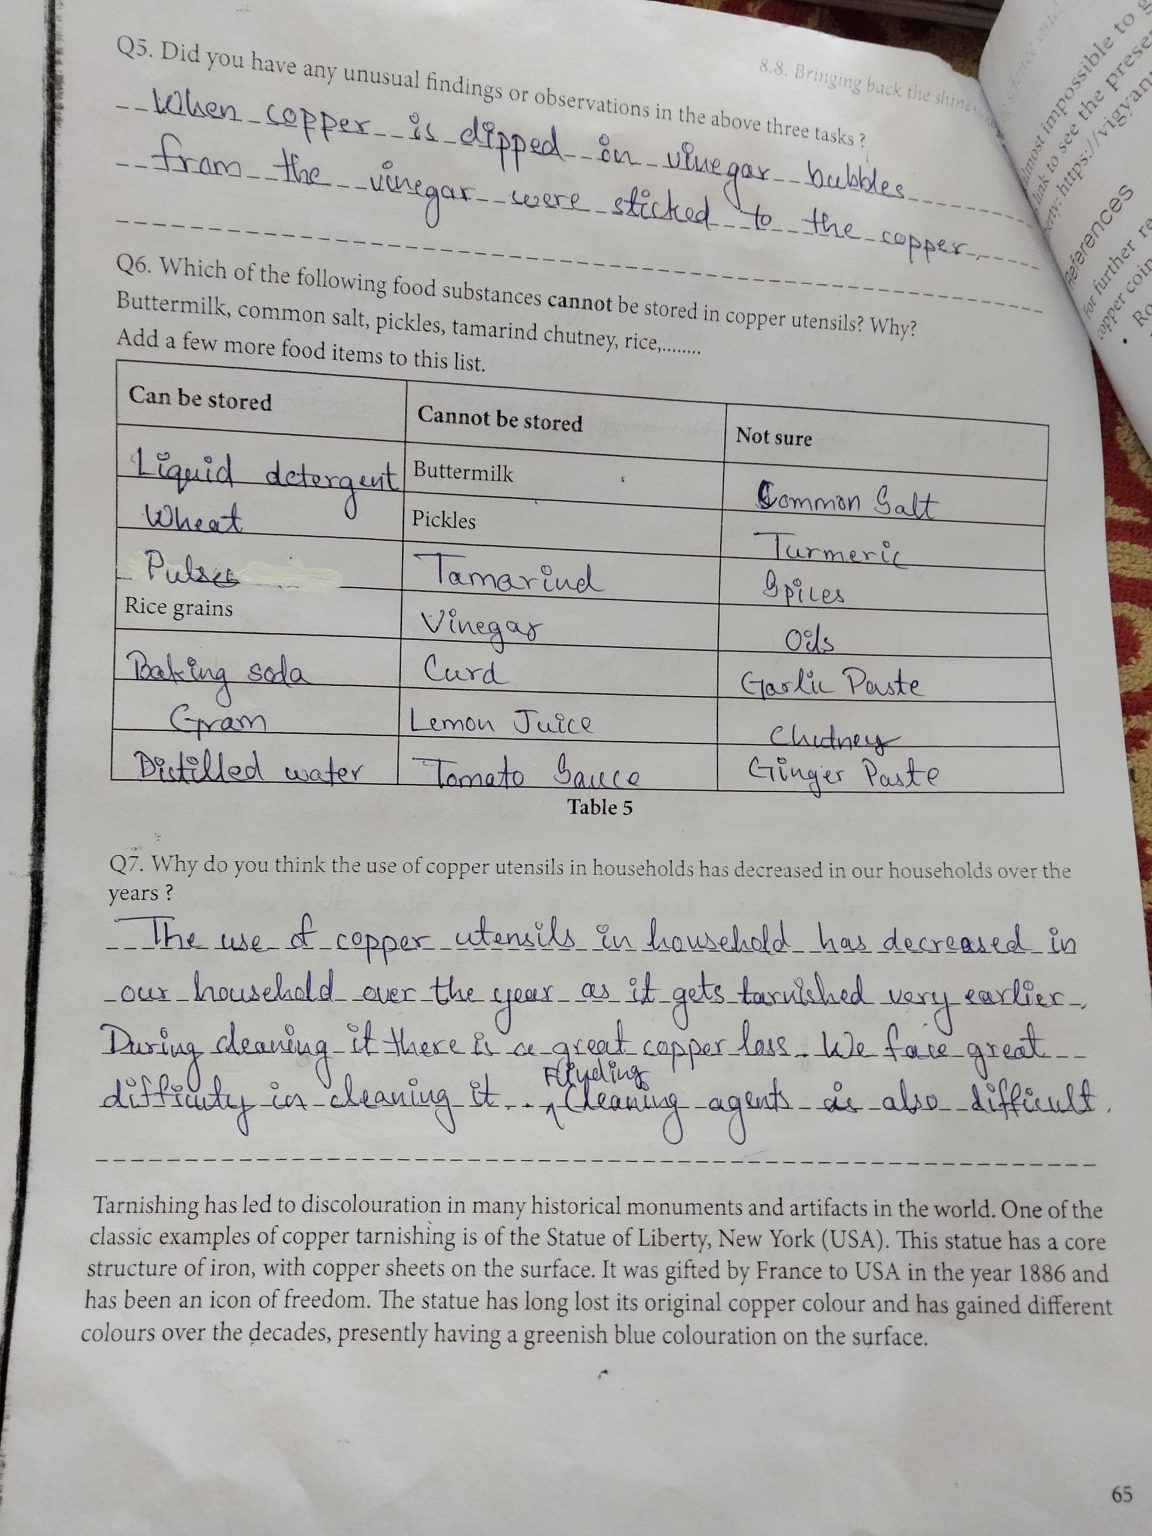 8.8. Bringing back the shine
Q5. Did you have any unusual findings or observations in the above three tasks ?
When copper is dipped in vinegar bubbles
from the vinegar were sticked to the copper.
Q6. Which of the following food substances cannot be stored in copper utensils? Why?
Buttermilk, common salt, pickles, tamarind chutney, rice,........
Add a few more food items to this list.
Can be stored Cannot be stored Not sure
Liquid detergent Buttermilk Common Salt
Wheat Pickles Turmeric
Pulses Tamarind Spices
Rice grains Vinegar Oils
Baking soda Curd Garlic Paste
Gram Lemon Juice Chutney
Distilled water Tomato Sauce Ginger Paste
Table 5
Q7. Why do you think the use of copper utensils in households has decreased in our households over the
years ?
The use of copper utensils in household has decreased in
our household over the year as it gets tarnished very earlier.
During cleaning it there is a great copper loss. We face great
difficulty in cleaning it. Finding Cleaning agents is also difficult.
Tarnishing has led to discolouration in many historical monuments and artifacts in the world. One of the
classic examples of copper tarnishing is of the Statue of Liberty, New York (USA). This statue has a core
structure of iron, with copper sheets on the surface. It was gifted by France to USA in the year 1886 and
has been an icon of freedom. The statue has long lost its original copper colour and has gained different
colours over the decades, presently having a greenish blue colouration on the surface.
65
almost impossible to
link to see the prese
erty: https://vigyan
References
For further re
copper coin
• Ro